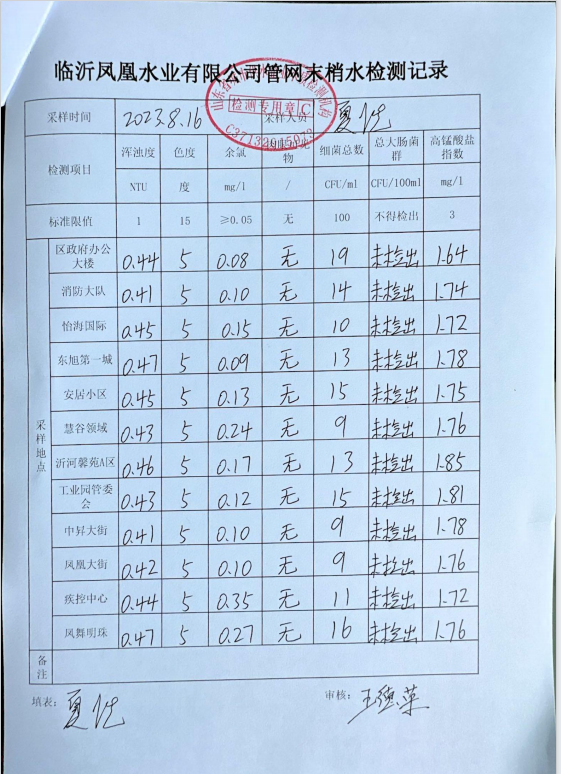 临沂凤凰水业有限公司管网末梢水检测记录
采样时间 2023.8.16 采样人员
检测专用章 C
C37132015073
检测项目 浑浊度 色度 余氯 物 细菌总数 总大肠菌群 高锰酸盐指数
NTU 度 mg/l / CFU/ml CFU/100ml mg/l
标准限值 1 15 ≥0.05 无 100 不得检出 3
采样地点
区政府办公大楼 0.44 5 0.08 无 19 未检出 1.64
消防大队 0.41 5 0.10 无 14 未检出 1.74
怡海国际 0.45 5 0.15 无 10 未检出 1.72
东旭第一城 0.47 5 0.09 无 13 未检出 1.78
安居小区 0.45 5 0.13 无 15 未检出 1.75
慧谷领域 0.43 5 0.24 无 9 未检出 1.76
沂河馨苑A区 0.46 5 0.17 无 13 未检出 1.85
工业园管委会 0.43 5 0.12 无 15 未检出 1.81
中昇大街 0.41 5 0.10 无 9 未检出 1.78
凤凰大街 0.42 5 0.10 无 9 未检出 1.76
疾控中心 0.44 5 0.35 无 11 未检出 1.72
凤舞明珠 0.47 5 0.27 无 16 未检出 1.76
备注
填表: 审核: 王德苹